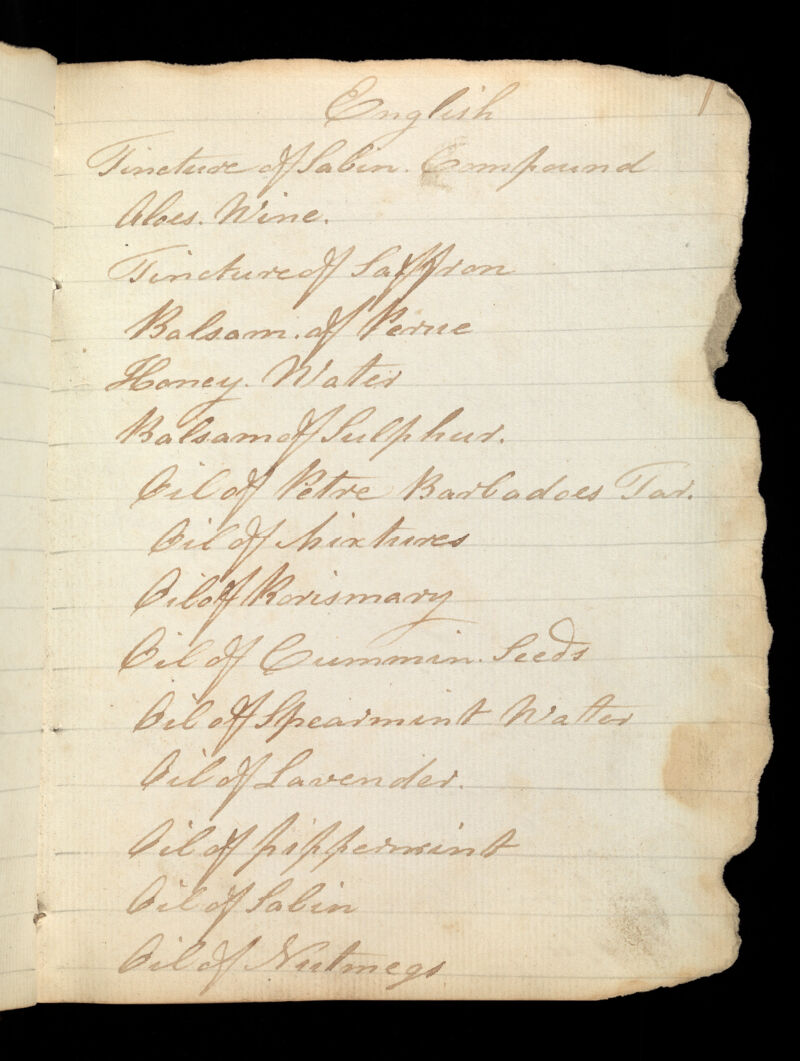 English
Tincture of Sabin. Compound
Aloes. Wine.
Tincture of Saffron
Balsam. of Perue
Honey. Water
Balsam of Sulphur.
Oil of Petre Barbadoes Tar.
Oil of Mixtures
Oil of Rorismary
Oil of Cummin. Seeds
Oil of Spearmint Water
Oil of Lavender.
Oil of pippermint
Oil of Sabin
Oil of Nutmegs